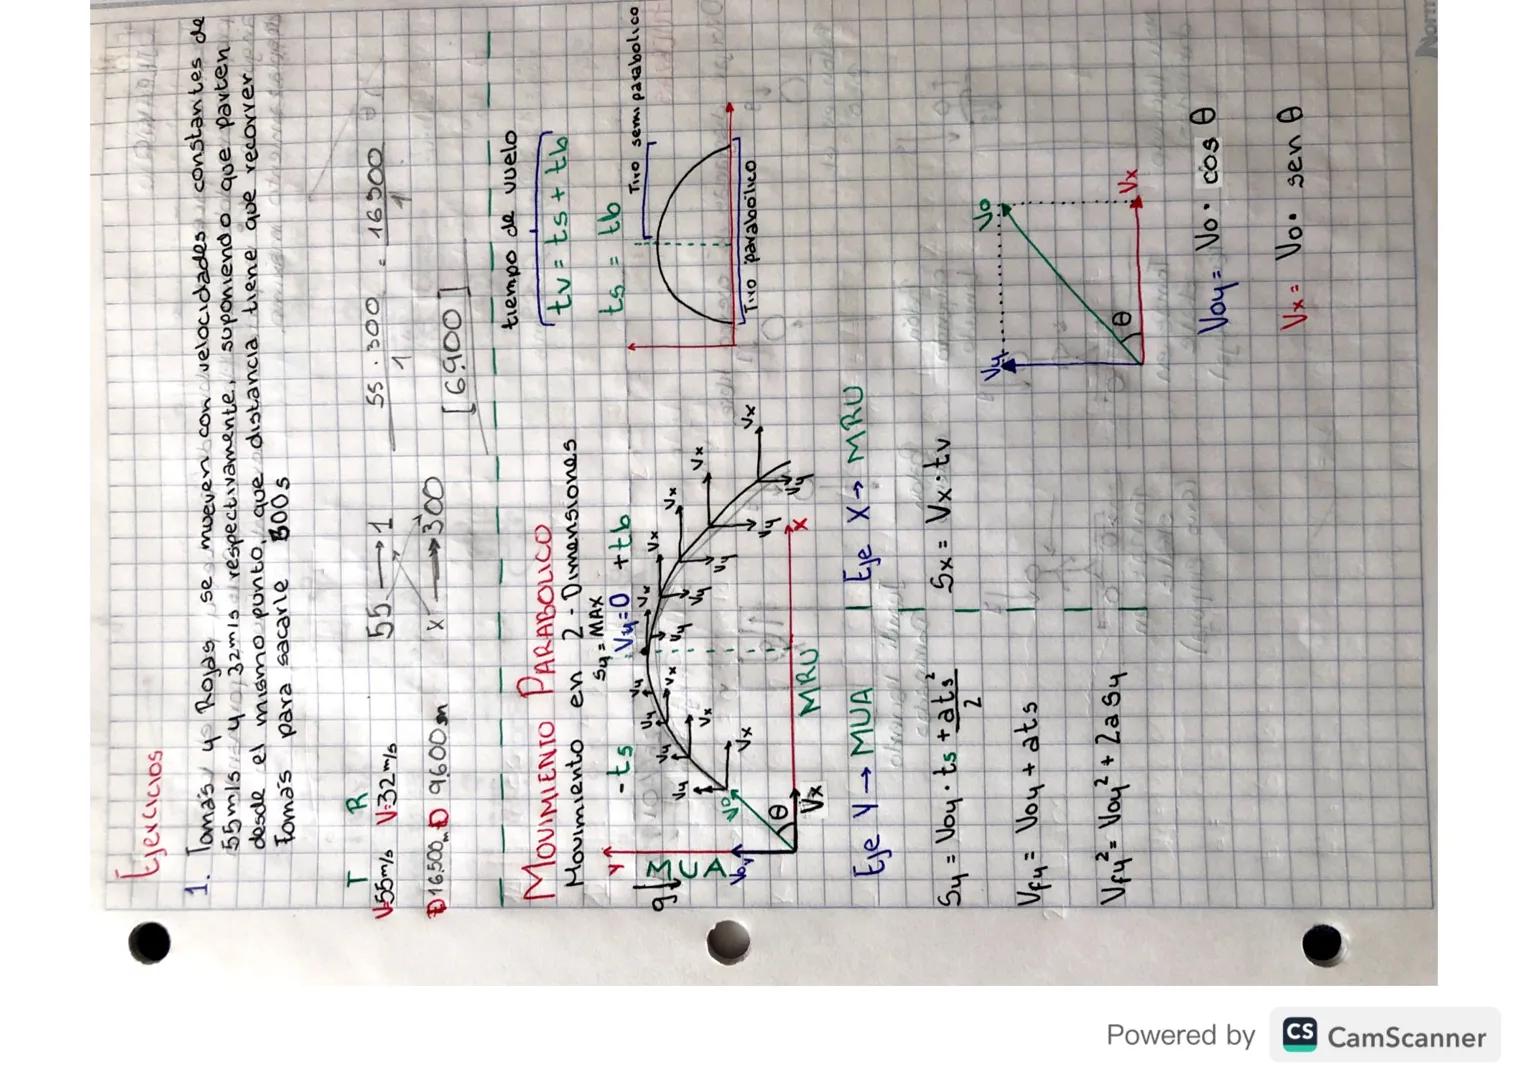 Ejercicios
1. Tomás y Rojas se mueven con velocidades constantes de
55m/s y 32m/s respectivamente, suponiendo que parten
desde el mismo punto, que distancia tiene que recorrer
Tomás para sacarle 300s
T R
V=55m/s V=32m/s
D 16.500m D 9.600m
55 → 1
x → 300
55 · 300 = 16500
1 1
[6.900]
MOVIMIENTO PARABOLICO
Movimiento en 2-Dimensiones
Sy = MAX
-ts Vy=0 +tb
y
g MUA
Voy
Vo
θ
Vx
MRU
x
Vy Vx
Vy Vx
Vy Vx
Vy Vx
Vy Vx
Vy Vx
Vy Vx
Vy Vx
Vy Vx
tiempo de vuelo
tv = ts + tb
ts = tb
Tiro semi parabolico
Tiro parabólico
Eje Y → MUA
Sy = Voy · ts + ats²
2
Vfy = Voy + ats
Vfy² = Voy² + 2aSy
Eje X → MRU
Sx = Vx · tv
Vy
Vo
θ
Vx
Voy = Vo · cos θ
Vx = Vo · sen θ
Norm
Powered by CS CamScanner